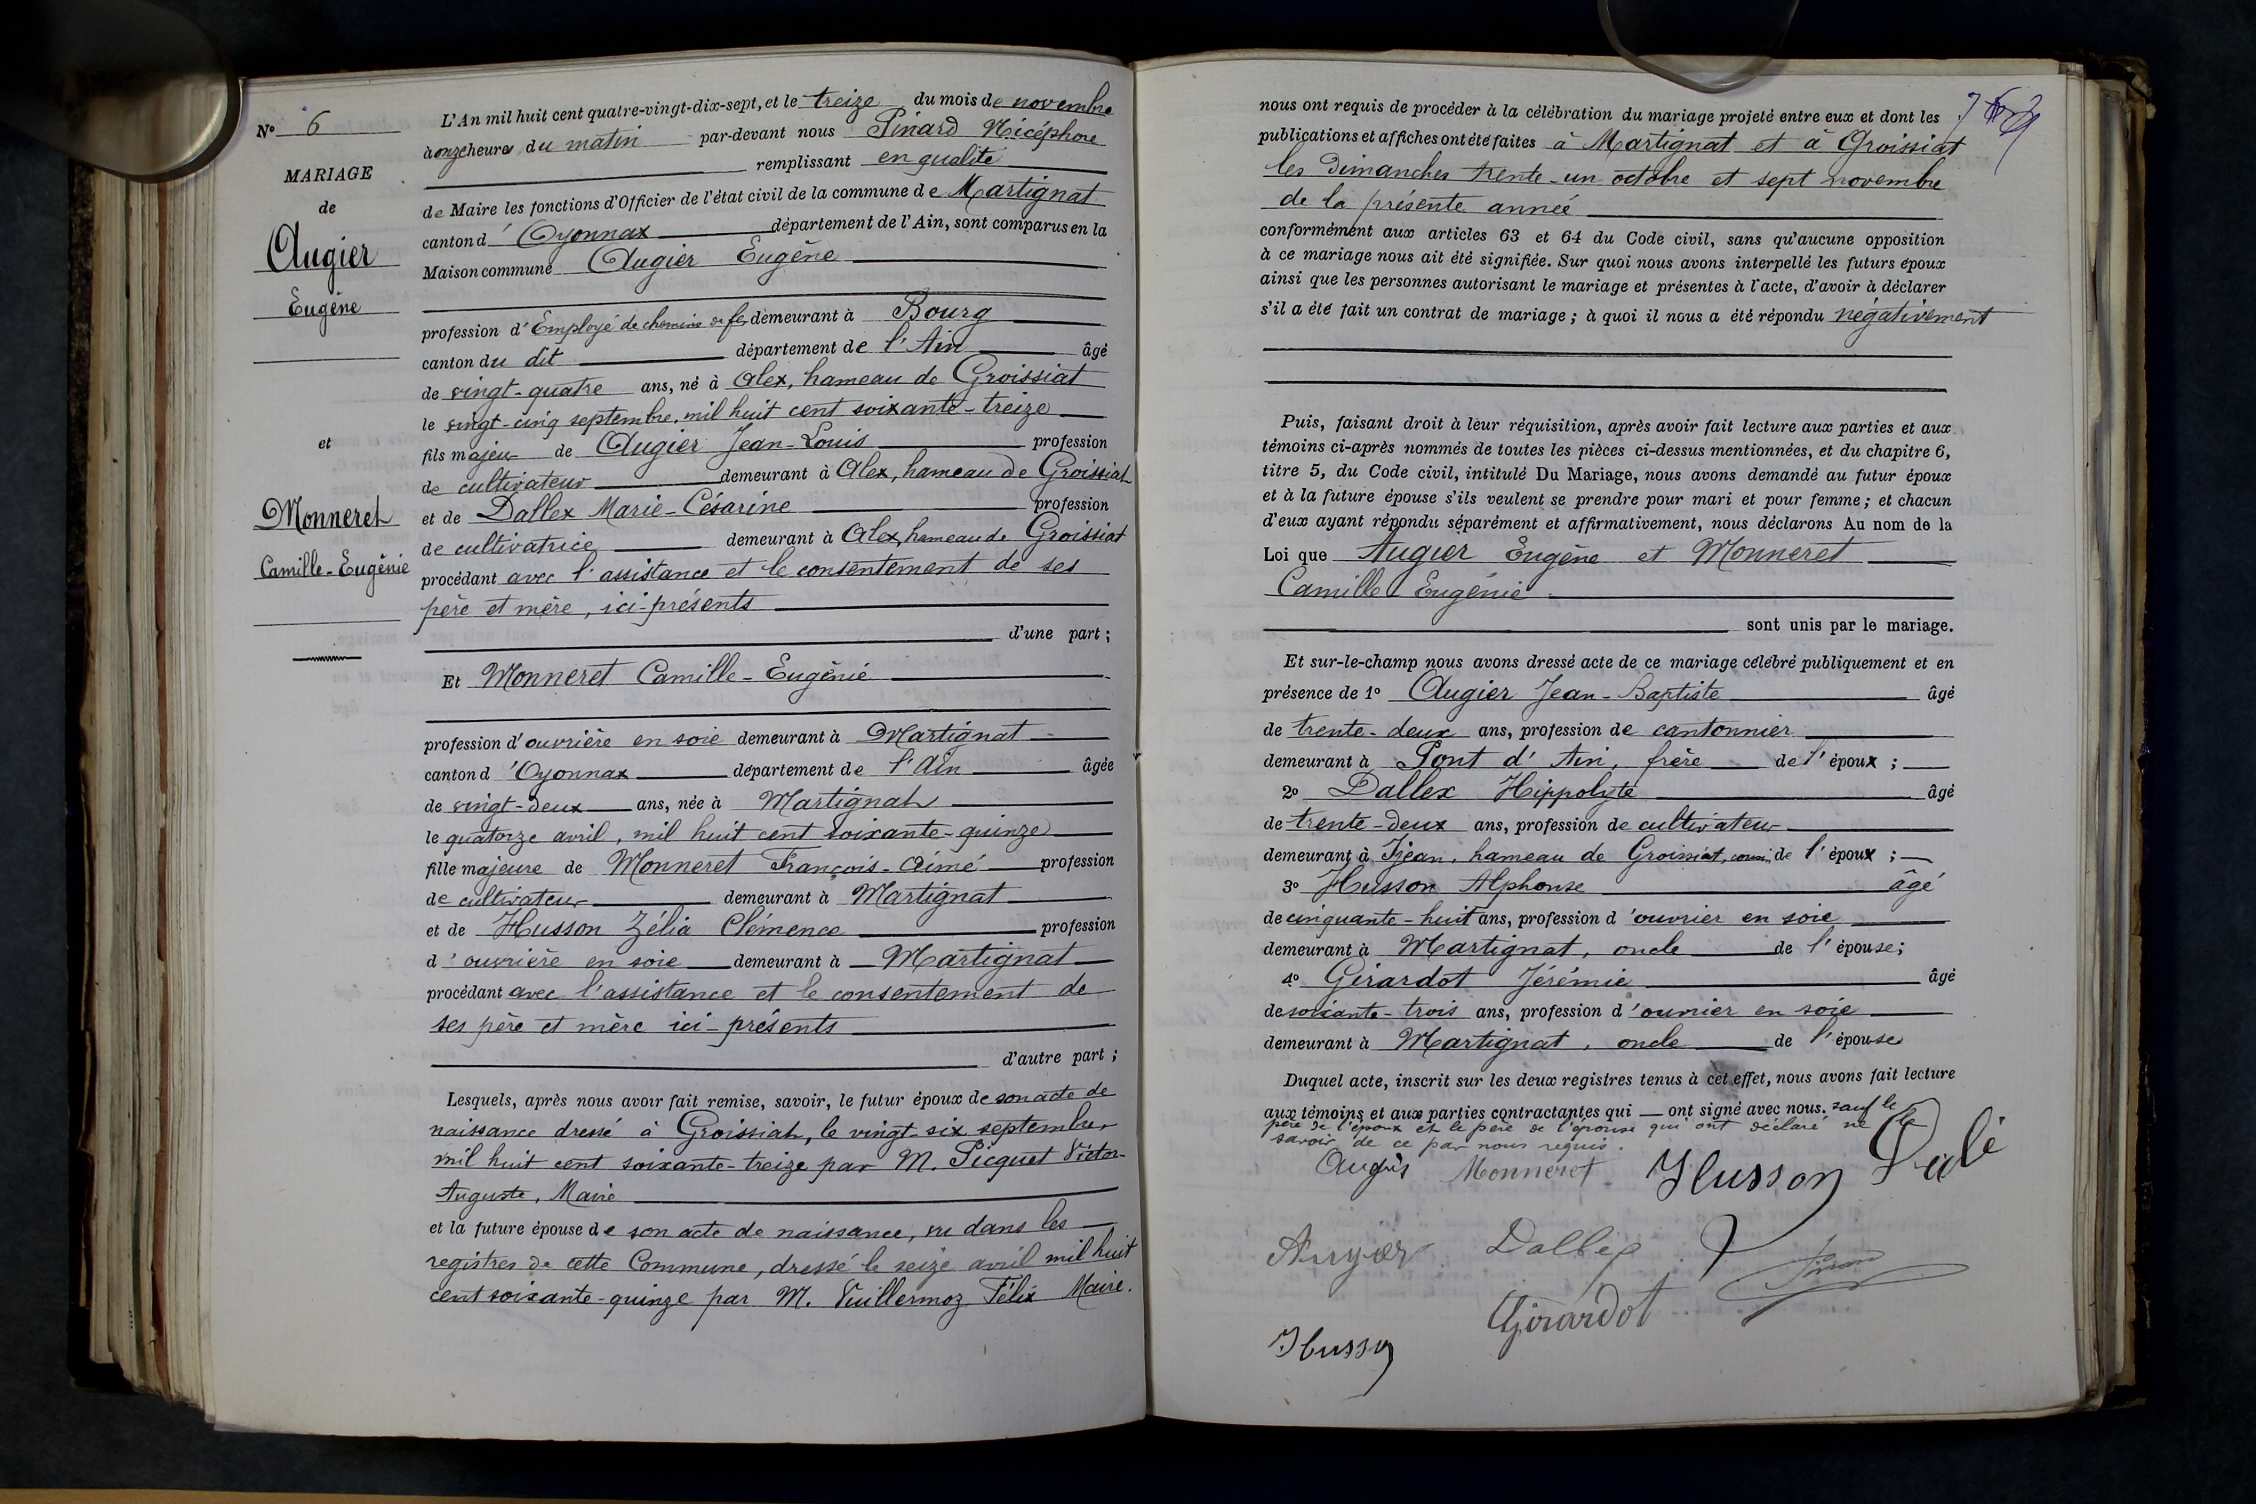 N° 6
MARIAGE
de
Augier
Eugène
et
Monneret
Camille-Eugénie
L'An mil huit cent quatre-vingt-dix-sept, et le treize du mois de novembre
à onze heures du matin par-devant nous Pinard Nicéphore
remplissant en qualité
de Maire les fonctions d'Officier de l'état civil de la commune de Martignat
canton d'Oyonnax département de l'Ain, sont comparus en la
Maison commune Augier Eugène
profession d'Employé de chemins de fer demeurant à Bourg
canton du dit département de l'Ain âgé
de vingt-quatre ans, né à Alex, hameau de Groissiat
le vingt-cinq septembre, mil huit cent soixante-treize
fils majeur de Augier Jean-Louis profession
de cultivateur demeurant à Alex, hameau de Groissiat
et de Dallex Marie-Césarine profession
de cultivatrice demeurant à Alex, hameau de Groissiat
procédant avec l'assistance et le consentement de ses
père et mère, ici-présents
d'une part ;
Et Monneret Camille-Eugénie
profession d'ouvrière en soie demeurant à Martignat
canton d'Oyonnax département de l'Ain âgée
de vingt-deux ans, née à Martignat
le quatorze avril, mil huit cent soixante-quinze
fille majeure de Monneret François-Aimé profession
de cultivateur demeurant à Martignat
et de Husson Zélia Clémence profession
d'ouvrière en soie demeurant à Martignat
procédant avec l'assistance et le consentement de
ses père et mère ici-présents
d'autre part ;
Lesquels, après nous avoir fait remise, savoir, le futur époux de son acte de
naissance dressé à Groissiat, le vingt-six septembre
mil huit cent soixante-treize par M. Picquet Victor-
Auguste, Maire
et la future épouse de son acte de naissance, vu dans les
registres de cette Commune, dressé le seize avril mil huit
cent soixante-quinze par M. Vuillermoz Félix Maire.
nous ont requis de procéder à la célébration du mariage projeté entre eux et dont les
publications et affiches ont été faites à Martignat et à Groissiat
les Dimanches trente-un octobre et sept novembre
de la présente année
conformément aux articles 63 et 64 du Code civil, sans qu'aucune opposition
à ce mariage nous ait été signifiée. Sur quoi nous avons interpellé les futurs époux
ainsi que les personnes autorisant le mariage et présentes à l'acte, d'avoir à déclarer
s'il a été fait un contrat de mariage ; à quoi il nous a été répondu négativement
Puis, faisant droit à leur réquisition, après avoir fait lecture aux parties et aux
témoins ci-après nommés de toutes les pièces ci-dessus mentionnées, et du chapitre 6,
titre 5, du Code civil, intitulé Du Mariage, nous avons demandé au futur époux
et à la future épouse s'ils veulent se prendre pour mari et pour femme ; et chacun
d'eux ayant répondu séparément et affirmativement, nous déclarons Au nom de la
Loi que Augier Eugène et Monneret
Camille Eugénie
sont unis par le mariage.
Et sur-le-champ nous avons dressé acte de ce mariage célébré publiquement et en
présence de 1° Augier Jean-Baptiste âgé
de trente-deux ans, profession de cantonnier
demeurant à Pont d'Ain, frère de l'époux ;
2° Dallex Hippolyte âgé
de trente-deux ans, profession de cultivateur
demeurant à Ijean, hameau de Groissiat, cousin de l'époux ;
3° Husson Alphonse âgé
de cinquante-huit ans, profession d'ouvrier en soie
demeurant à Martignat, oncle de l'épouse ;
4° Girardot Jérémie âgé
de soixante-trois ans, profession d'ouvrier en soie
demeurant à Martignat, oncle de l'épouse
Duquel acte, inscrit sur les deux registres tenus à cet effet, nous avons fait lecture
aux témoins et aux parties contractantes qui ont signé avec nous. sauf le
père de l'époux et le père de l'épouse qui ont déclaré ne le
savoir de ce par nous requis.
Augier Monneret Husson
Augier Dallex
Pinard
Girardot
Husson